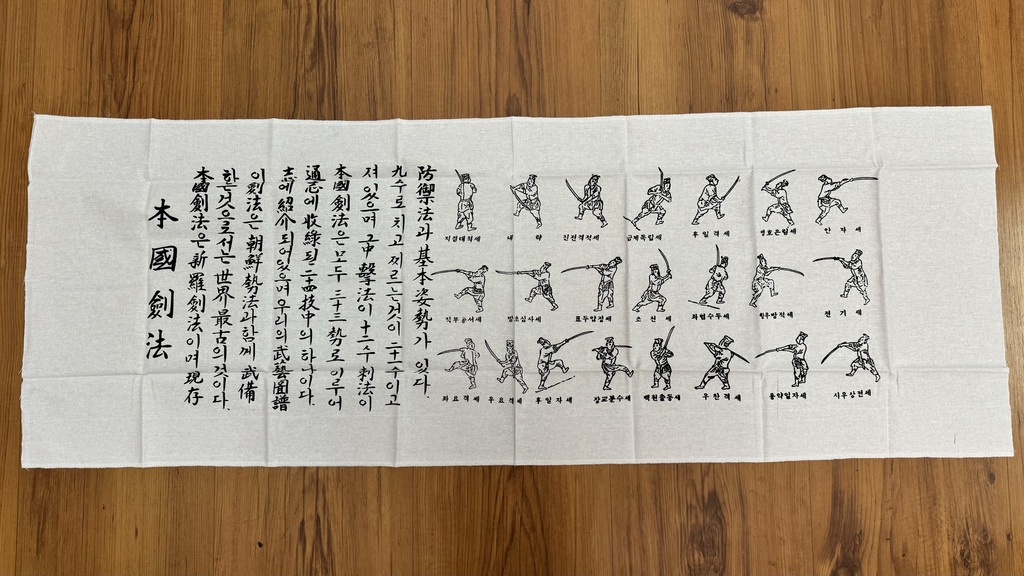 本國劍法
本國劍法은 新羅劍法이며 現存
한것으로서는 世界最古의것이다.
이劍法은 朝鮮勢法과함께 武備
志에 紹介되어있으며 우리의 武藝圖譜
通志에 收綠된 二十四技中의 하나이다.
本國劍法은모두 三十三勢로이루어
져있으며 그中 擊法이 十二수 刺法이
九수로치고 찌르는것이 二十一수이고
防禦法과 基本姿勢가 있다.
지검대적세 내략 진전격적세 금계독립세 후일격세 맹호은림세 안자세
직부송서세 발초심사세 표두압정세 조천세 좌협수두세 향우방적세 전기세
좌요격세 우요격세 후일자세 장교분수세 백원출동세 우찬격세 용약일자세 시우상전세